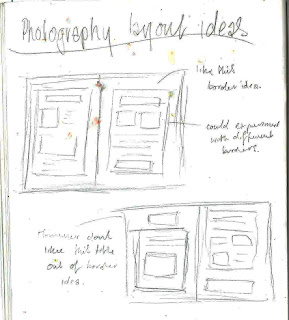 Photography layout ideas
like this
border idea.
could experiment
with different
borders.
However dont
like this title
out of border
idea.